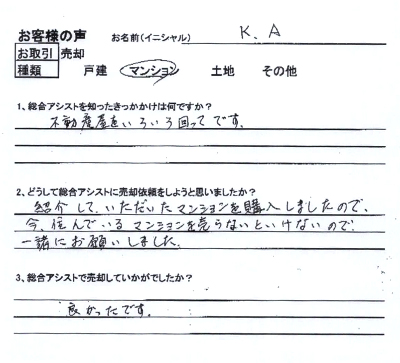 お客様の声 お名前(イニシャル) K.A
お取引 売却
種類 戸建 マンション 土地 その他
1、総合アシストを知ったきっかけは何ですか？
不動産屋をいろいろ回ってです。
2、どうして総合アシストに売却依頼をしようと思いましたか？
紹介して、いただいたマンションを購入しましたので、
今、住んでいるマンションを売らないといけないので、
一緒にお願いしました。
3、総合アシストで売却していかがでしたか？
良かったです。